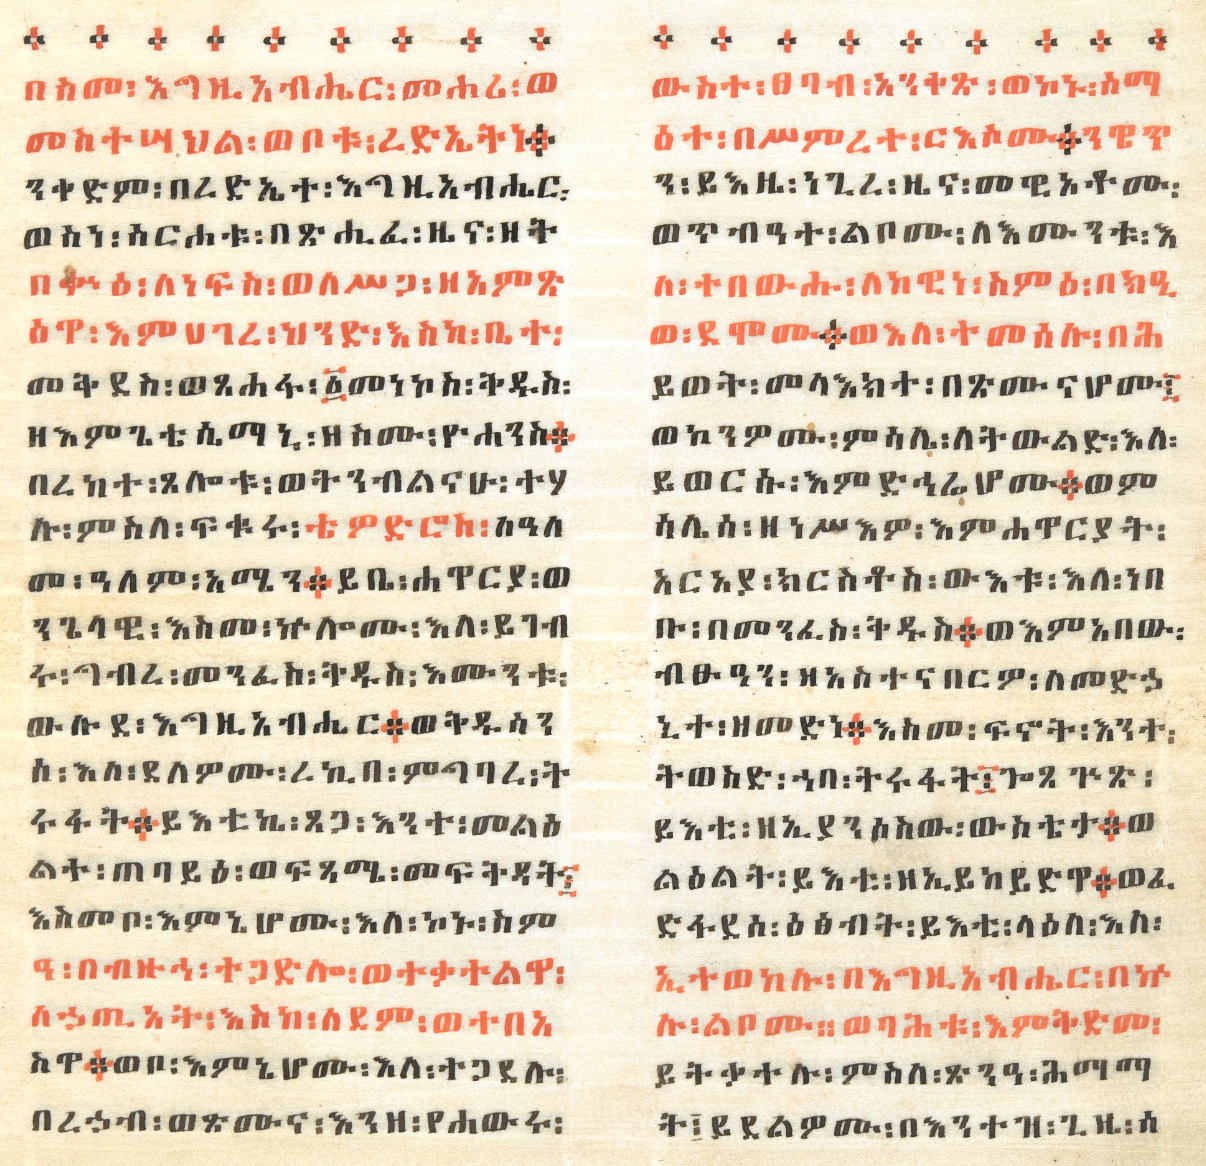 በስመ፡ እግዚአብሔር፡ መሐሪ፡ ወ
መስተሣህል፡ ወቦቱ፡ ረድኤትነ፨
ንቀድም፡ በረድኤተ፡ እግዚአብሔር፡
ወስነ፡ ስርሐቱ፡ በጽሒፈ፡ ዜና፡ ዘት
በቍዕ፡ ለነፍስ፡ ወለሥጋ፡ ዘአምጽ
ዕዋ፡ እምሀገረ፡ ህንድ፡ እስከ፡ ቤተ፡
መቅደስ፡ ወጸሐፋ፡ ፩መነኮስ፡ ቅዱስ፡
ዘእምጌቴሴማኒ፡ ዘስሙ፡ ዮሐንስ፨
በረከተ፡ ጸሎቱ፡ ወትንብልናሁ፡ ተሃ
ሉ፡ ምስለ፡ ፍቁሩ፡ ቴዎድሮስ፡ ለዓለ
መ፡ ዓለም፡ አሜን፨ ይቤ፡ ሐዋርያ፡ ወ
ንጌላዊ፡ እስመ፡ ኵሎሙ፡ እለ፡ ይገብ
ሩ፡ ግብረ፡ መንፈስ፡ ቅዱስ፡ እሙንቱ፡
ውሉደ፡ እግዚአብሔር፨ ወቅዱሳን
ሰ፡ እለ፡ ደለዎሙ፡ ረኪበ፡ ምግባረ፡ ት
ሩፋት፨ ይእቲኬ፡ ጸጋ፡ እንተ፡ መልዕ
ልተ፡ ጠባይዕ፡ ወፍጻሜ፡ መፍቅዳት፤
እስመቦ፡ እምኔሆሙ፡ እለ፡ ኮኑ፡ ስም
ዓ፡ በብዙኃ፡ ተጋድሎ፡ ወተቃተልዋ፡
ለኃጢአት፡ እስከ፡ ለደም፡ ወተበአ
ስዋ፨ ወቦ፡ እምኔሆሙ፡ እለ፡ ተጋደሉ፡
በረኃብ፡ ወጽሙና፡ እንዘ፡ የሐውሩ፡
ውስተ፡ ፀባብ፡ አንቀጽ፡ ወኮኑ፡ ሰማ
ዕተ፡ በሥምረተ፡ ርእሶሙ፨ ንዌጥ
ን፡ ይእዜ፡ ነጊረ፡ ዜና፡ መዊአቶሙ፡
ወጥብዓተ፡ ልቦሙ፡ ለእሙንቱ፡ እ
ለ፡ ተበውሑ፡ ለከዊነ፡ ስምዕ፡ በክዒ
ወ፡ ደሞሙ፨ ወእለ፡ ተመሰሉ፡ በሕ
ይወት፡ መላእክተ፡ በጽሙናሆሙ፤
ወኮንዎሙ፡ ምሳሌ፡ ለትውልድ፡ እለ፡
ይወርሱ፡ እምድኅሬሆሙ፨ ወም
ሳሌሰ፡ ዘነሥእዎ፡ እምሐዋርያት፡
አርአያ፡ ክርስቶስ፡ ውእቱ፡ እለ፡ ነበ
ቡ፡ በመንፈስ፡ ቅዱስ፨ ወእምአበው፡
ብፁዓን፡ ዘአስተናበርዎ፡ ለመድኃ
ኒተ፡ ዘመድነ፨ እስመ፡ ፍኖት፡ እንተ፡
ትወስድ፡ ኀበ፡ ትሩፋት፤ ጐጻጕጽ፡
ይእቲ፡ ዘኢያንፅስው፡ ውስቴታ፨ ወ
ልዕልት፡ ይእቲ፡ ዘኢይከይድዋ፨ ወፈ
ድፋደሰ፡ ዕፅብት፡ ይእቲ፡ ላዕለ፡ እለ፡
ኢተወከሉ፡ በእግዚአብሔር፡ በኵ
ሉ፡ ልቦሙ። ወባሕቱ፡ እምቅድመ፡
ይትቃተሉ፡ ምስለ፡ ጽንዓ፡ ሕማማ
ት፤ ይደልዎሙ፡ በእንተዝ፡ ጊዜ፡ ሰ